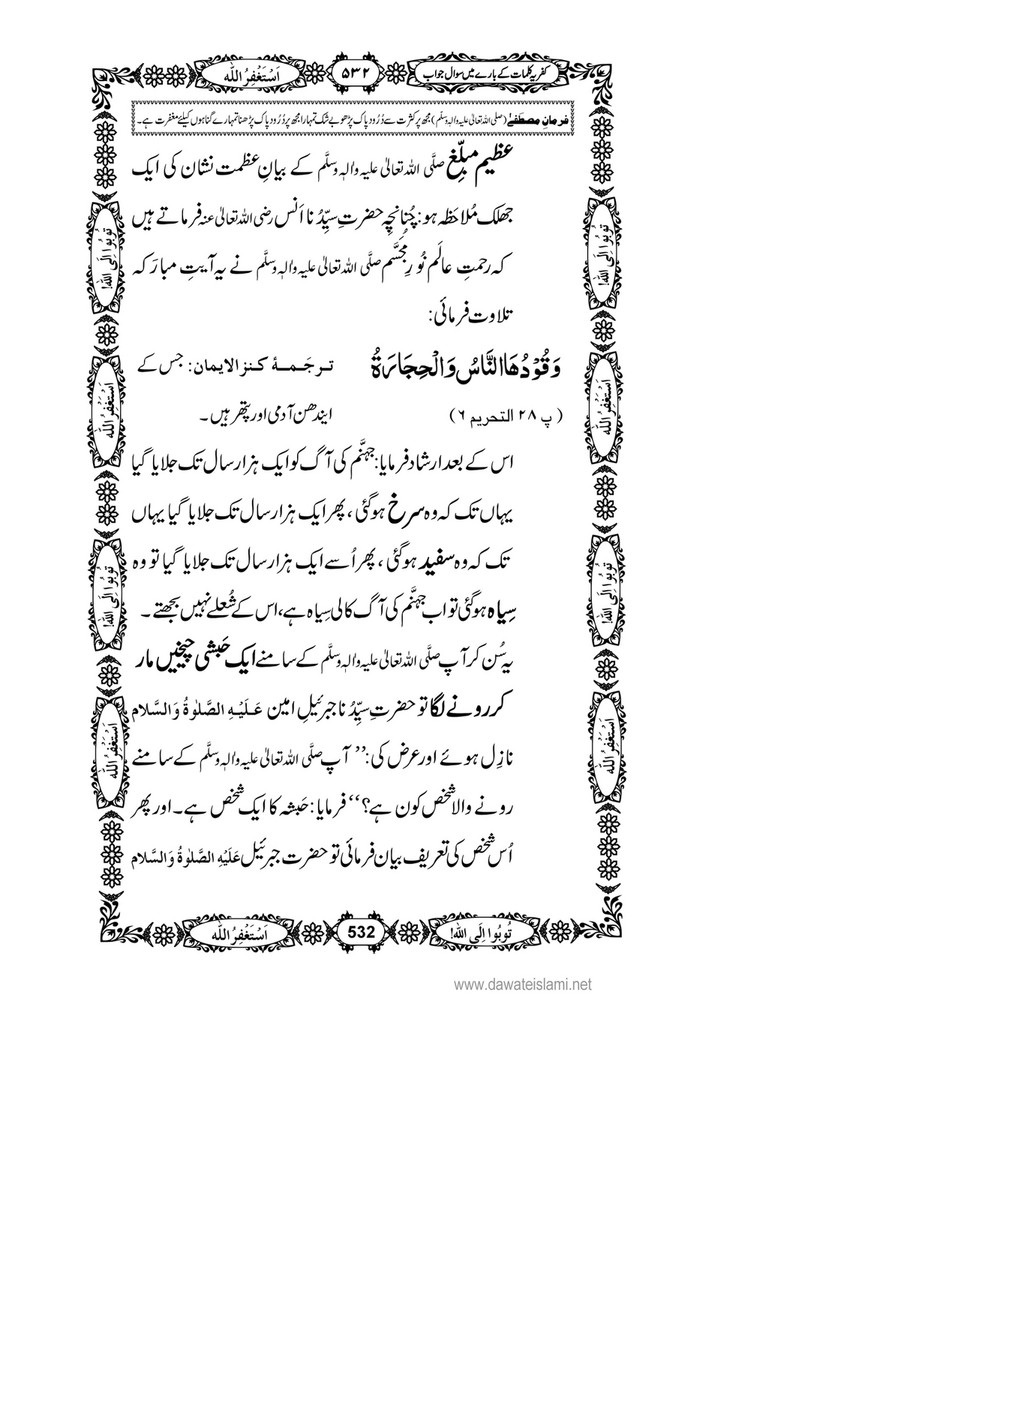 کفریہ کلمات کے بارے میں سوال جواب ۵۳۲ اَسْتَغْفِرُ اللّٰہ
فرمانِ مصطفےٰ (صلی اللہ تعالیٰ علیہ واٰلہٖ وسلّم) مجھ پر کثرت سے دُرُودِ پاک پڑھو بے شک تمہارا مجھ پر دُرُودِ پاک پڑھنا تمہارے گناہوں کیلئے مغفرت ہے۔
عظیم مبلِّغ صلَّی اللہ تعالیٰ علیہ واٰلہٖ وسلَّم کے بیانِ عظمت نشان کی ایک
جھلک مُلاحَظہ ہو: چُنانچِہ حضرتِ سیِّدُنا اَنَس رضی اللہ تعالیٰ عنہ فرماتے ہیں
کہ رحمتِ عالَم نُورِ مجسَّم صلَّی اللہ تعالیٰ علیہ واٰلہٖ وسلَّم نے یہ آیتِ مبارَکہ
تلاوت فرمائی:
وَقُوْدُهَا النَّاسُ وَالْحِجَارَةُ ترجَمۂ کنزالایمان: جس کے
(پ ۲۸ التحریم ۶) ایندھن آدمی اور پتھر ہیں۔
اس کے بعد ارشاد فرمایا: جہنَّم کی آگ کو ایک ہزار سال تک جلایا گیا
یہاں تک کہ وہ سرخ ہوگئی، پھر ایک ہزار سال تک جلایا گیا یہاں
تک کہ وہ سفید ہوگئی، پھر اُسے ایک ہزار سال تک جلایا گیا تو وہ
سِیاہ ہوگئی تو اب جہنَّم کی آگ کالی سِیاہ ہے، اس کے شُعلے نہیں بجھتے۔
یہ سُن کر آپ صلَّی اللہ تعالیٰ علیہ واٰلہٖ وسلَّم کے سامنے ایک حَبشی چیخیں مار
کر رونے لگا تو حضرتِ سیِّدُنا جبرئیلِ امین عَلَیْہِ الصَّلٰوۃُ وَالسَّلام
نازِل ہوئے اور عرض کی: ’’آپ صلَّی اللہ تعالیٰ علیہ واٰلہٖ وسلَّم کے سامنے
رونے والا شخص کون ہے؟‘‘ فرمایا: حَبشہ کا ایک شخص ہے۔ اور پھر
اُس شخص کی تعریف بیان فرمائی تو حضرت جبرئیل عَلَیْہِ الصَّلٰوۃُ وَالسَّلام
تُوبُوا اِلَی اللّٰہ! 532 اَسْتَغْفِرُ اللّٰہ
تُوبُوا اِلَی اللّٰہ!
اَسْتَغْفِرُ اللّٰہ
تُوبُوا اِلَی اللّٰہ!
اَسْتَغْفِرُ اللّٰہ
تُوبُوا اِلَی اللّٰہ!
اَسْتَغْفِرُ اللّٰہ
تُوبُوا اِلَی اللّٰہ!
اَسْتَغْفِرُ اللّٰہ
www.dawateislami.net